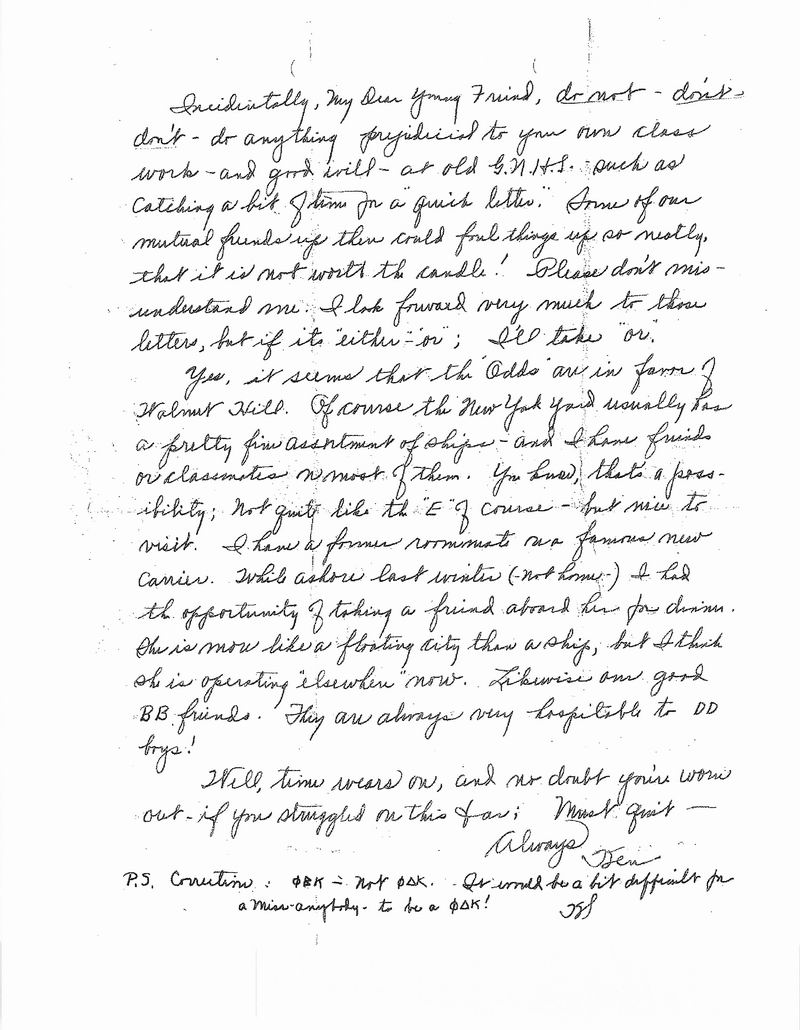 Incidentally, My Dear Young Friend, do not - don't -
don't - do anything prejudicial to your own class
work - and good will - at old G.N.H.S. such as
catching a bit of time for a "quick letter." Some of our
mutual friends up there could foul things up so neatly,
that it is not worth the candle! Please don't mis-
understand me. I look forward very much to those
letters, but if its "either" - "or"; I'll take "or".
Yes, it seems that the "Odds" are in favor of
Walnut Hill. Of course the New York Yard usually has
a pretty fine assortment of ships - and I have friends
or classmates in most of them. You know, that's a poss-
ibility; Not quite like the "E" of course - but nice to
visit. I have a former roommate on a famous new
carrier. While ashore last winter (-not home-) I had
the opportunity of taking a friend aboard her for dinner.
She is more like a floating city than a ship, but I think
she is operating "elsewhere" now. Likewise our good
BB friends. They are always very hospitable to DD
boys!
Well, time wears on, and no doubt you're worn
out - if you struggled on this far; Must quit —
Always
P.S. Correction: ΦBK = Not ΦΔK. It would be a bit difficult for
a Miss-anybody- to be a ΦΔK!